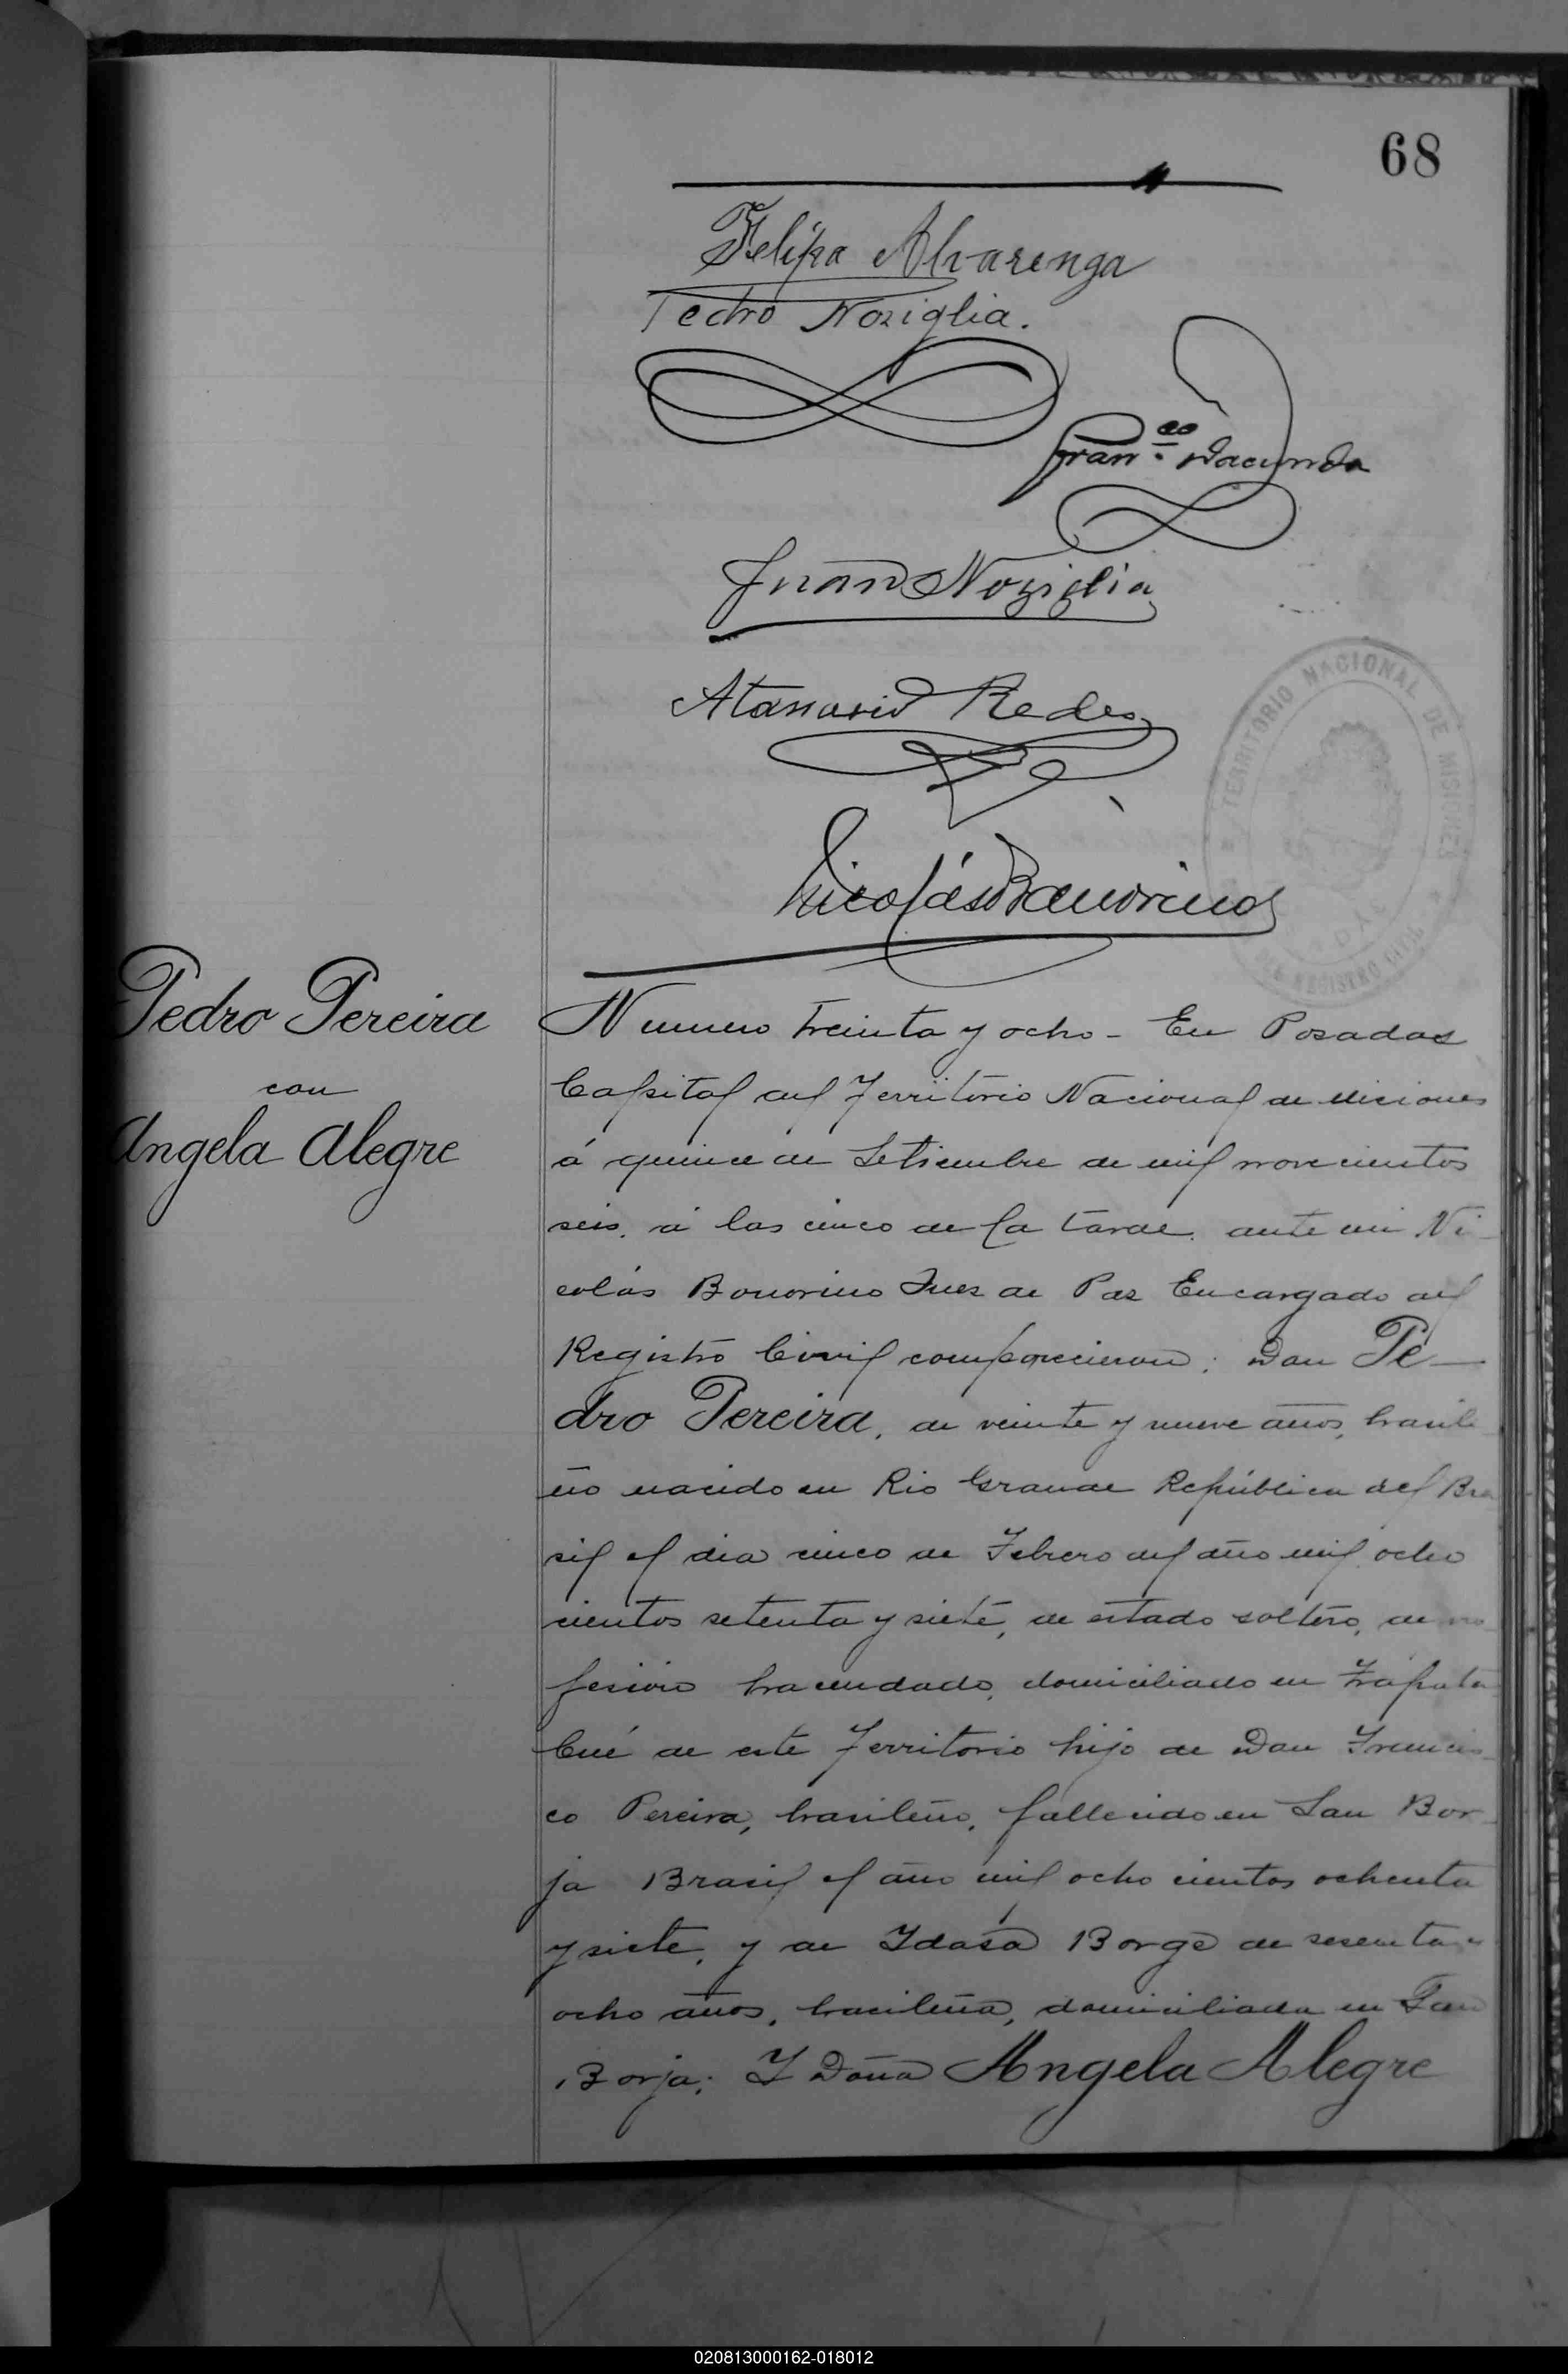 68
Felipa Alvarenga
Pedro Noziglia.
Fran.co Dacunda
Juan Noziglia
Atanasio Redes
Nicolás Bonorino
TERRITORIO NACIONAL DE MISIONES
REGISTRO CIVIL
Pedro Pereira
con
Angela Alegre
Numero treinta y ocho - En Posadas
Capital del Territorio Nacional de Misiones
á quince de Setiembre de mil novecientos
seis, á las cinco de la tarde, ante mi Ni-
colás Bonorino Juez de Paz Encargado del
Registro Civil comparecieron: Don Pe-
dro Pereira, de veinte y nueve años, brasile-
ño nacido en Rio Grande República del Bra
sil el dia cinco de Febrero del año mil ocho
cientos setenta y siete, de estado soltero, de pro
fesion hacendado, domiciliado en
Cué de este Territorio hijo de Don Francis-
co Pereira, brasileño, fallecido en San Bor-
ja Brasil el año mil ocho cientos ochenta
y siete, y de Borge de sesenta y
ocho años, brasileña, domiciliada en San
Borja; Y Doña Angela Alegre
020813000162-018012